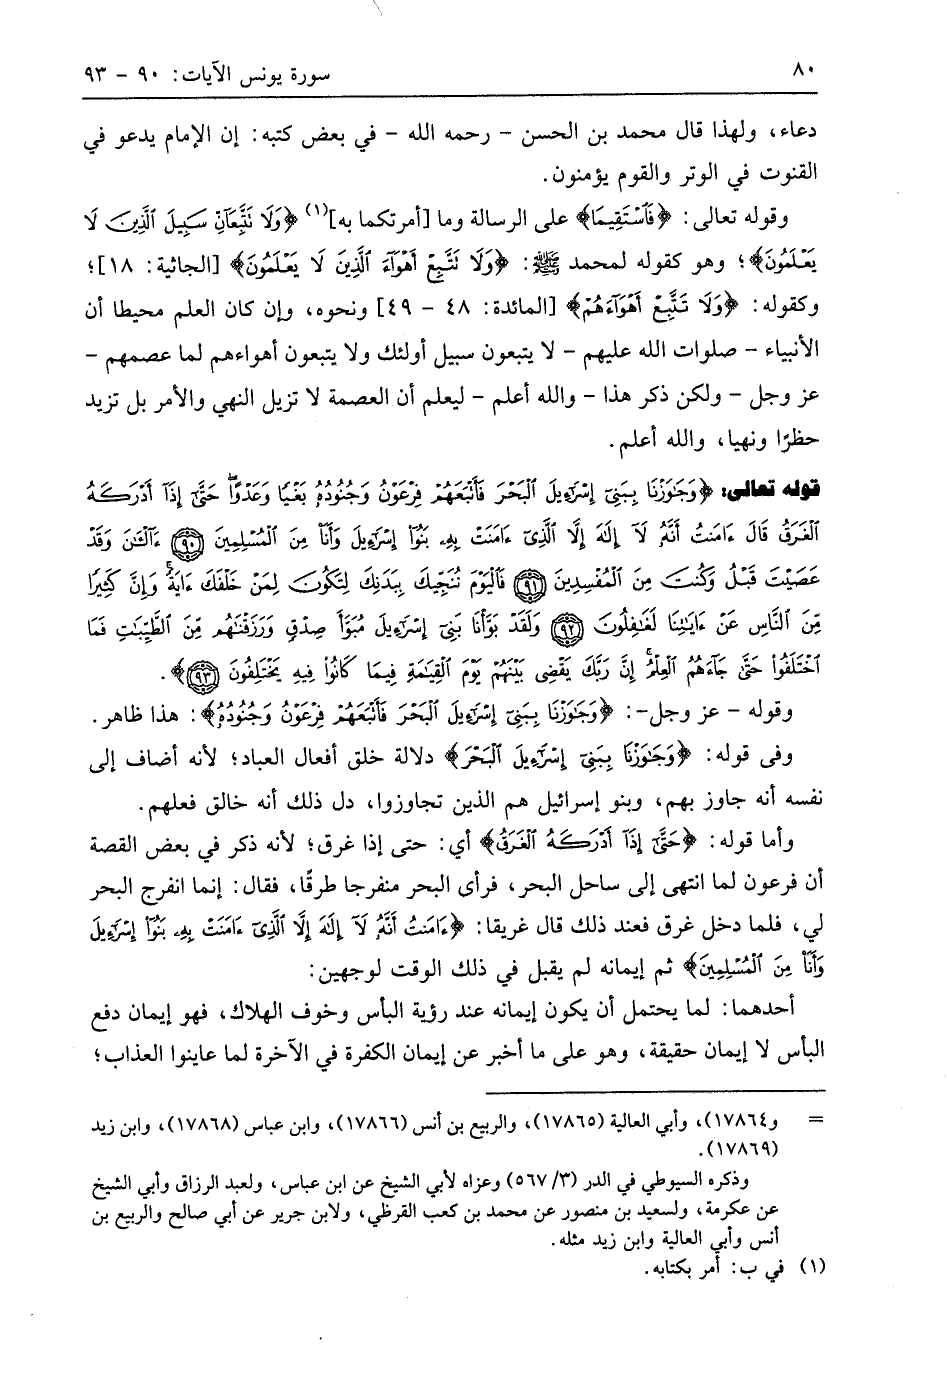 ٨٠ سورة يونس الآيات: ٩٠ - ٩٣
دعاء، ولهذا قال محمد بن الحسن - رحمه الله - في بعض كتبه: إن الإمام يدعو في
القنوت في الوتر والقوم يؤمنون.
وقوله تعالى: ﴿فَٱسْتَقِيمَا﴾ على الرسالة وما [أمرتكما به](١) ﴿وَلَا نَتَّبِعَآنِّ سَبِيلَ ٱلَّذِينَ لَا
يَعْلَمُونَ﴾؛ وهو كقوله لمحمد ﷺ: ﴿وَلَا نَتَّبِعْ أَهْوَآءَ ٱلَّذِينَ لَا يَعْلَمُونَ﴾ [الجاثية: ١٨]؛
وكقوله: ﴿وَلَا تَتَّبِعْ أَهْوَآءَهُمْ﴾ [المائدة: ٤٨ - ٤٩] ونحوه، وإن كان العلم محيطا أن
الأنبياء - صلوات الله عليهم - لا يتبعون سبيل أولئك ولا يتبعون أهواءهم لما عصمهم -
عز وجل - ولكن ذكر هذا - والله أعلم - ليعلم أن العصمة لا تزيل النهي والأمر بل تزيد
حظرًا ونهيا، والله أعلم.
قوله تعالى: ﴿وَجَٰوَزْنَا بِبَنِىٓ إِسْرَٰٓءِيلَ ٱلْبَحْرَ فَأَتْبَعَهُمْ فِرْعَوْنُ وَجُنُودُهُۥ بَغْيًا وَعَدْوًا حَتَّىٰٓ إِذَآ أَدْرَكَهُ
ٱلْغَرَقُ قَالَ ءَامَنتُ أَنَّهُۥ لَآ إِلَٰهَ إِلَّا ٱلَّذِىٓ ءَامَنَتْ بِهِۦ بَنُوٓا۟ إِسْرَٰٓءِيلَ وَأَنَا۠ مِنَ ٱلْمُسْلِمِينَ ﴿٩٠﴾ ءَآلْـَٰٔنَ وَقَدْ
عَصَيْتَ قَبْلُ وَكُنتَ مِنَ ٱلْمُفْسِدِينَ ﴿٩١﴾ فَٱلْيَوْمَ نُنَجِّيكَ بِبَدَنِكَ لِتَكُونَ لِمَنْ خَلْفَكَ ءَايَةً ۚ وَإِنَّ كَثِيرًا
مِّنَ ٱلنَّاسِ عَنْ ءَايَٰتِنَا لَغَٰفِلُونَ ﴿٩٢﴾ وَلَقَدْ بَوَّأْنَا بَنِىٓ إِسْرَٰٓءِيلَ مُبَوَّأَ صِدْقٍ وَرَزَقْنَٰهُم مِّنَ ٱلطَّيِّبَٰتِ فَمَا
ٱخْتَلَفُوا۟ حَتَّىٰ جَآءَهُمُ ٱلْعِلْمُ ۚ إِنَّ رَبَّكَ يَقْضِى بَيْنَهُمْ يَوْمَ ٱلْقِيَٰمَةِ فِيمَا كَانُوا۟ فِيهِ يَخْتَلِفُونَ ﴿٩٣﴾﴾.
وقوله - عز وجل-: ﴿وَجَٰوَزْنَا بِبَنِىٓ إِسْرَٰٓءِيلَ ٱلْبَحْرَ فَأَتْبَعَهُمْ فِرْعَوْنُ وَجُنُودُهُۥ﴾: هذا ظاهر.
وفى قوله: ﴿وَجَٰوَزْنَا بِبَنِىٓ إِسْرَٰٓءِيلَ ٱلْبَحْرَ﴾ دلالة خلق أفعال العباد؛ لأنه أضاف إلى
نفسه أنه جاوز بهم، وبنو إسرائيل هم الذين تجاوزوا، دل ذلك أنه خالق فعلهم.
وأما قوله: ﴿حَتَّىٰٓ إِذَآ أَدْرَكَهُ ٱلْغَرَقُ﴾ أي: حتى إذا غرق؛ لأنه ذكر في بعض القصة
أن فرعون لما انتهى إلى ساحل البحر، فرأى البحر منفرجا طرقًا، فقال: إنما انفرج البحر
لي، فلما دخل غرق فعند ذلك قال غريقا: ﴿ءَامَنتُ أَنَّهُۥ لَآ إِلَٰهَ إِلَّا ٱلَّذِىٓ ءَامَنَتْ بِهِۦ بَنُوٓا۟ إِسْرَٰٓءِيلَ
وَأَنَا۠ مِنَ ٱلْمُسْلِمِينَ﴾ ثم إيمانه لم يقبل في ذلك الوقت لوجهين:
أحدهما: لما يحتمل أن يكون إيمانه عند رؤية البأس وخوف الهلاك، فهو إيمان دفع
البأس لا إيمان حقيقة، وهو على ما أخبر عن إيمان الكفرة في الآخرة لما عاينوا العذاب؛
= و١٧٨٦٤)، وأبي العالية (١٧٨٦٥)، والربيع بن أنس (١٧٨٦٦)، وابن عباس (١٧٨٦٨)، وابن زيد
(١٧٨٦٩).
وذكره السيوطي في الدر (٣/ ٥٦٧) وعزاه لأبي الشيخ عن ابن عباس، ولعبد الرزاق وأبي الشيخ
عن عكرمة، ولسعيد بن منصور عن محمد بن كعب القرظي، ولابن جرير عن أبي صالح والربيع بن
أنس وأبي العالية وابن زيد مثله.
(١) في ب: أمر بكتابه.